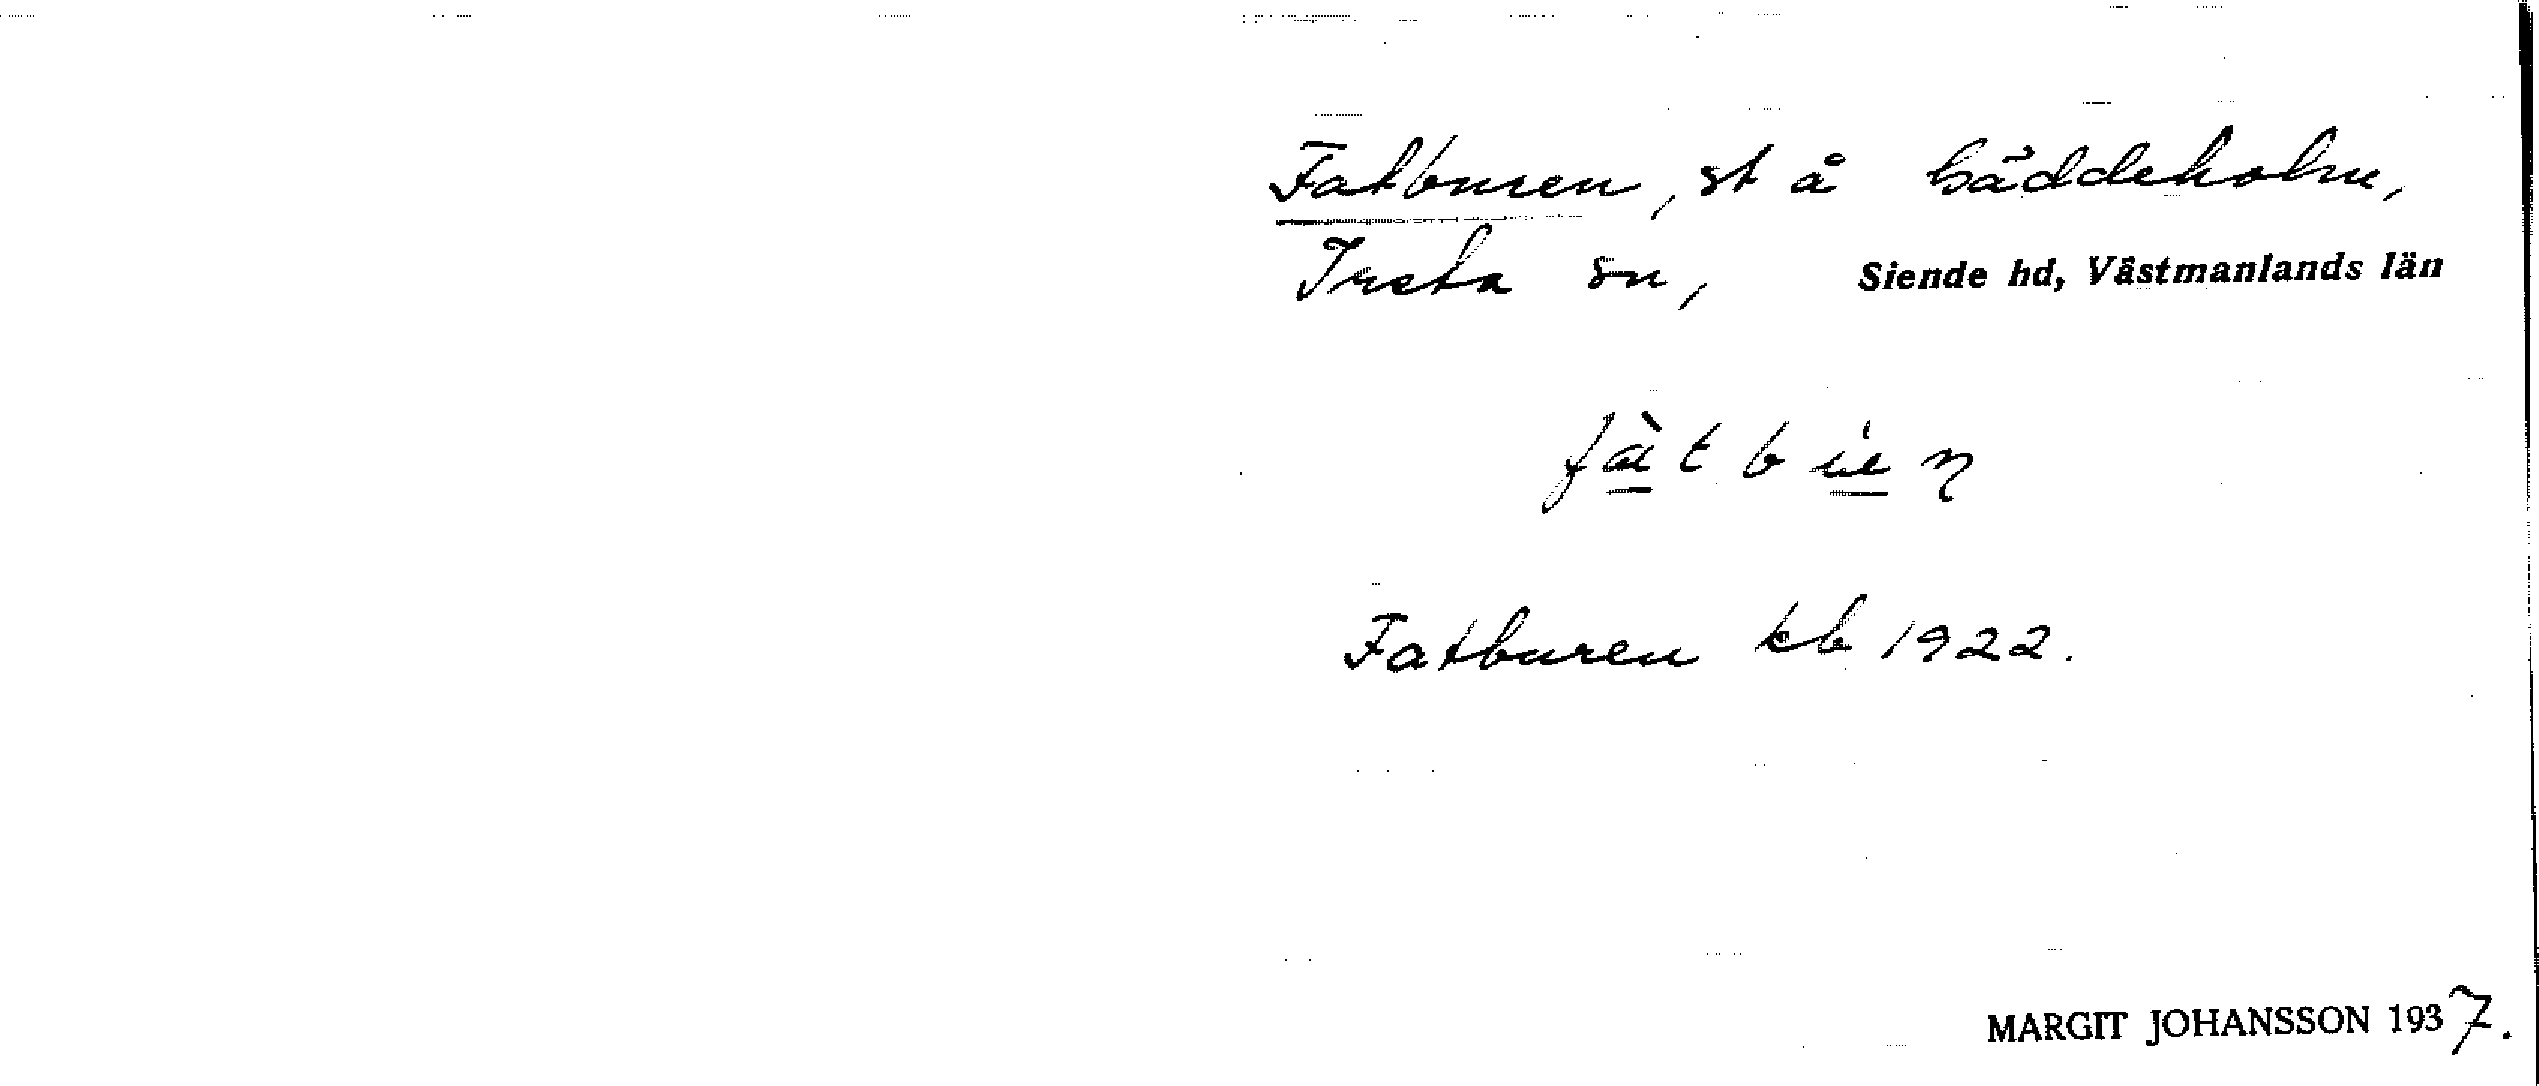 Fatburen, st å Gäddeholm,
Irsta sn, Siende hd, Västmanlands län
Fatburen kb 1922.
MARGIT JOHANSSON 1937.